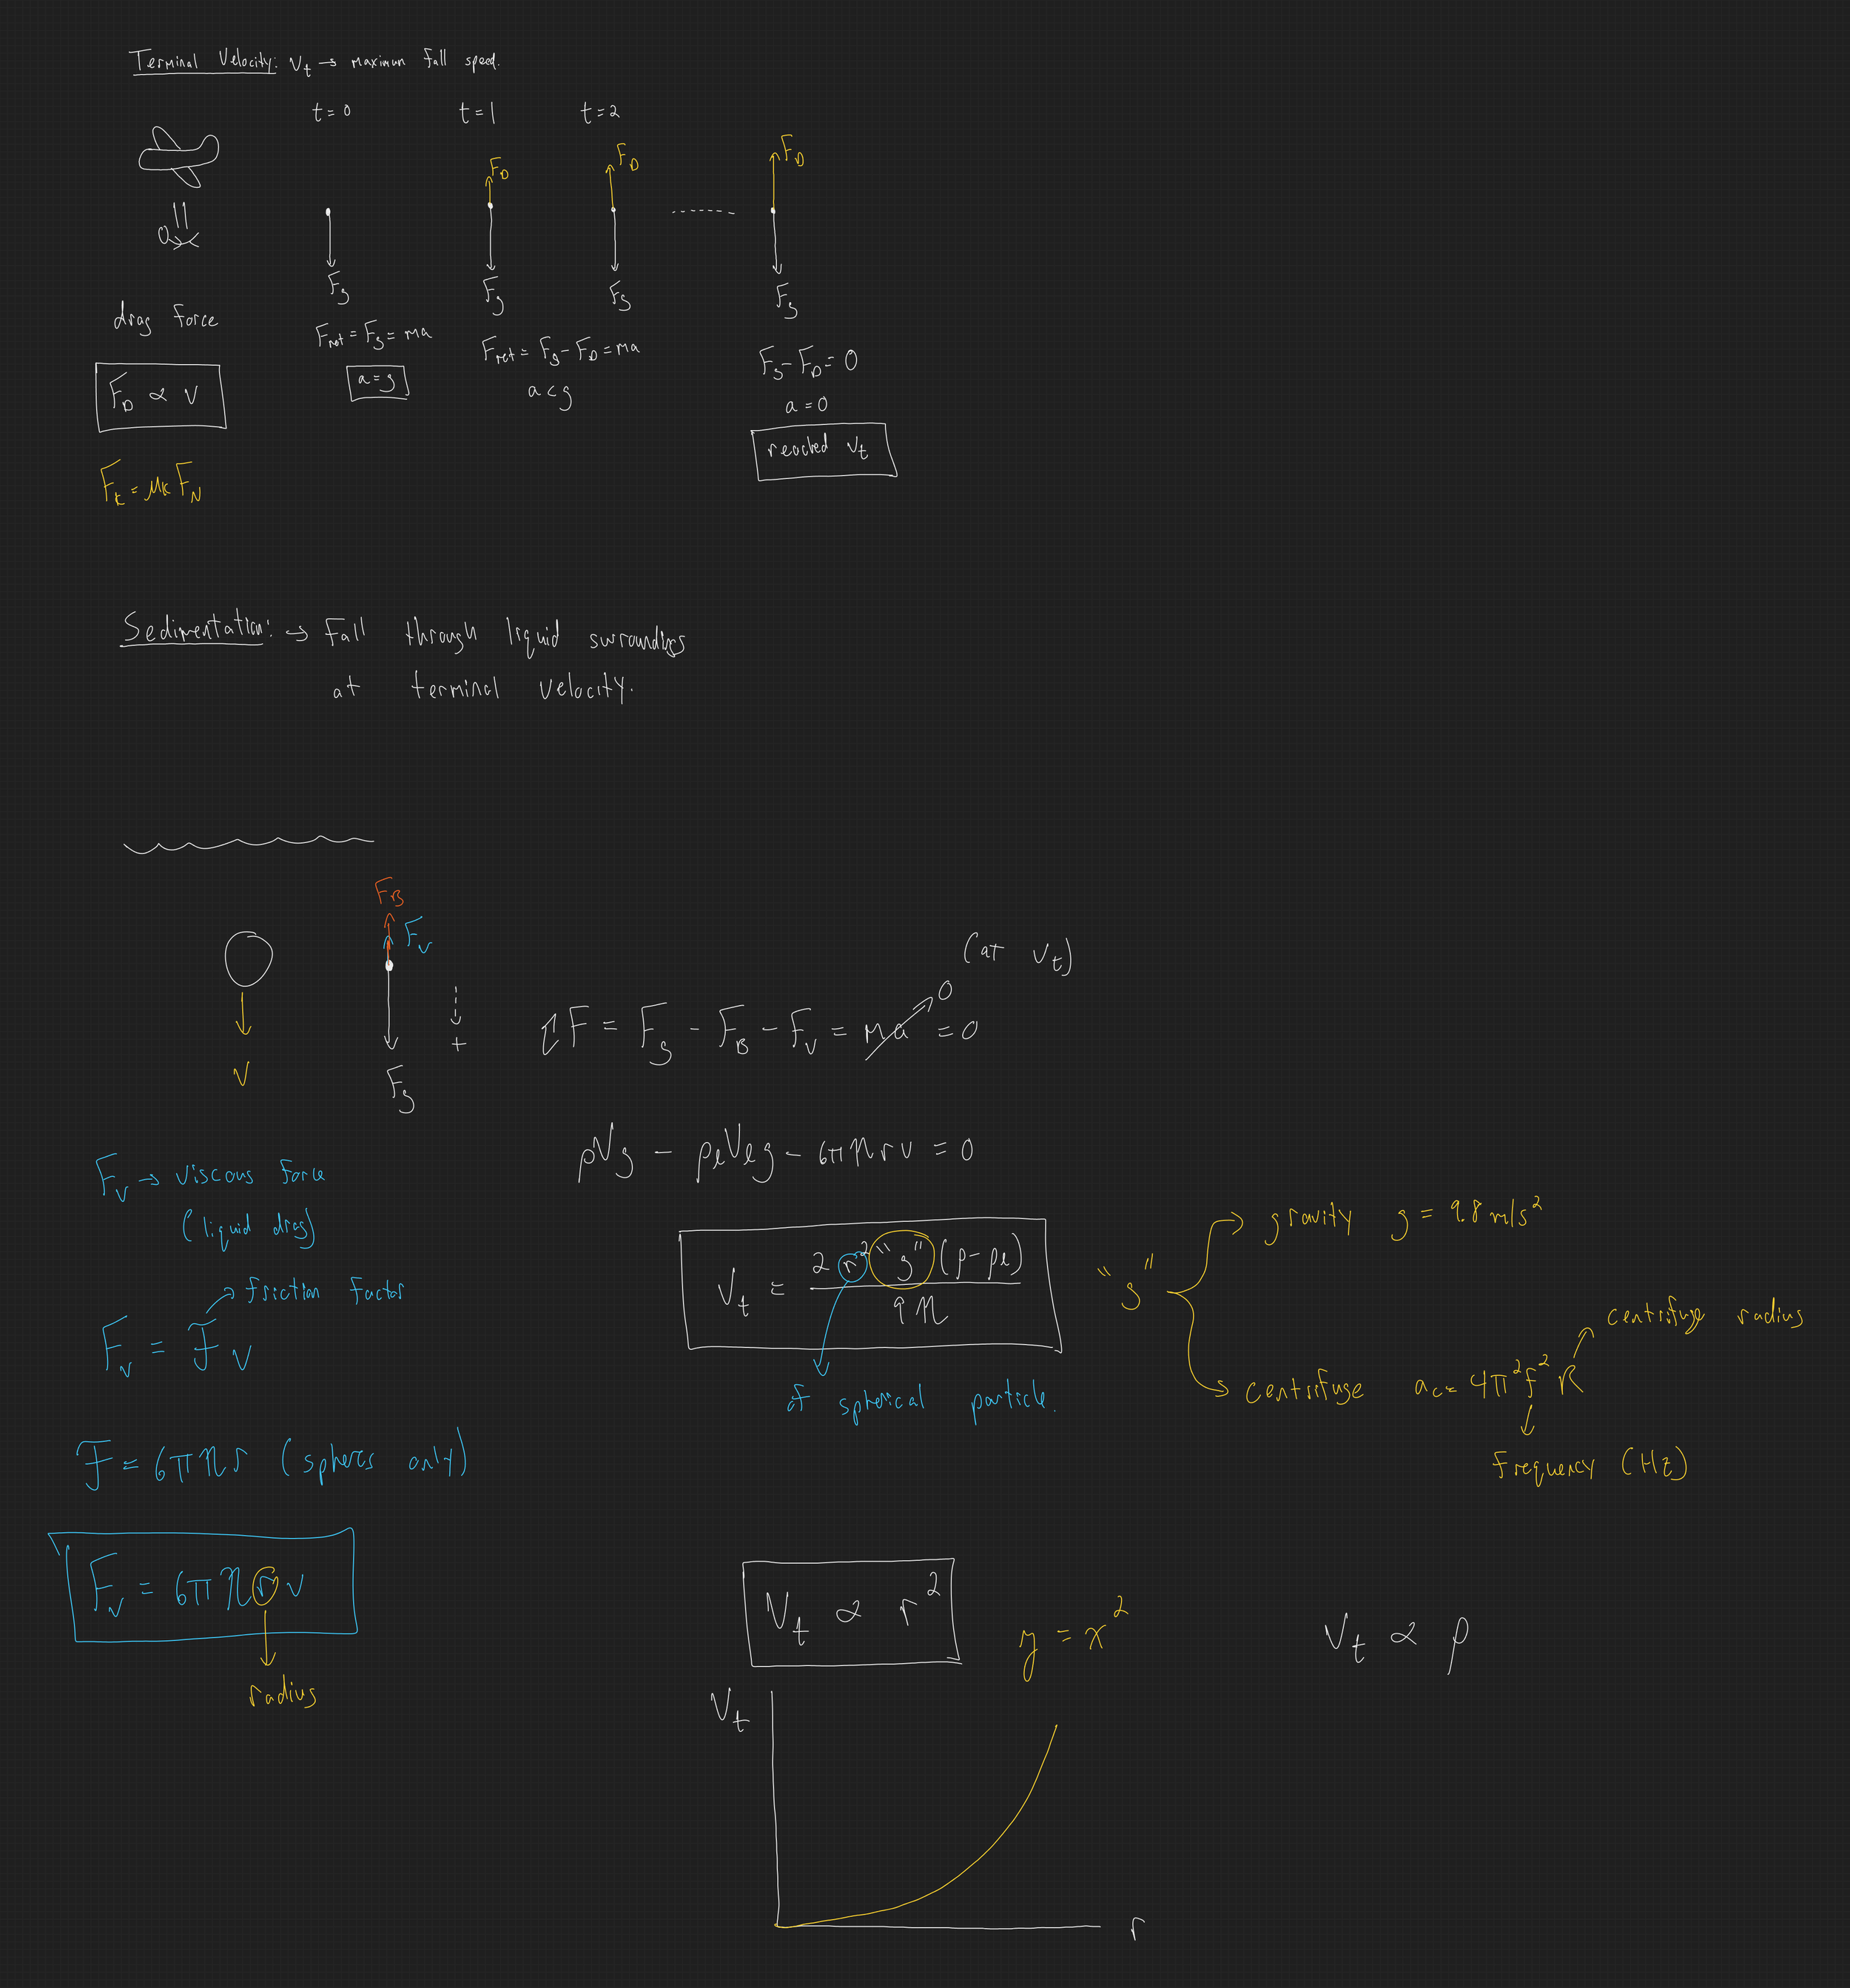 Terminal Velocity: Vt → maximum fall speed.
t = 0
t = 1
t = 2
FD
FD
FD
Fg
Fg
Fg
Fg
drag force
FD ∝ v
Fk = μk FN
Fnet = Fg = ma
a = g
Fnet = Fg − FD = ma
a < g
Fg − FD = 0
a = 0
reached vt
Sedimentation: → Fall through liquid surroundings
at terminal velocity.
FB
Fv
v
Fg
+
(at vt)
ΣF = Fg − FB − Fv = ma = 0
0
ρVg − ρℓVℓg − 6πηrv = 0
Fv → viscous force
(liquid drag)
→ friction factor
Fv = Fv
F = 6πηr (spheres only)
Fv = 6πηrv
radius
Vt = 2r² "g" (ρ − ρℓ) / 9η
of spherical particle.
"g"
gravity g = 9.8 m/s²
centrifuge radius
centrifuge ac = 4π²f²R
frequency (Hz)
Vt ∝ r²
y = x²
Vt ∝ ρ
Vt
r